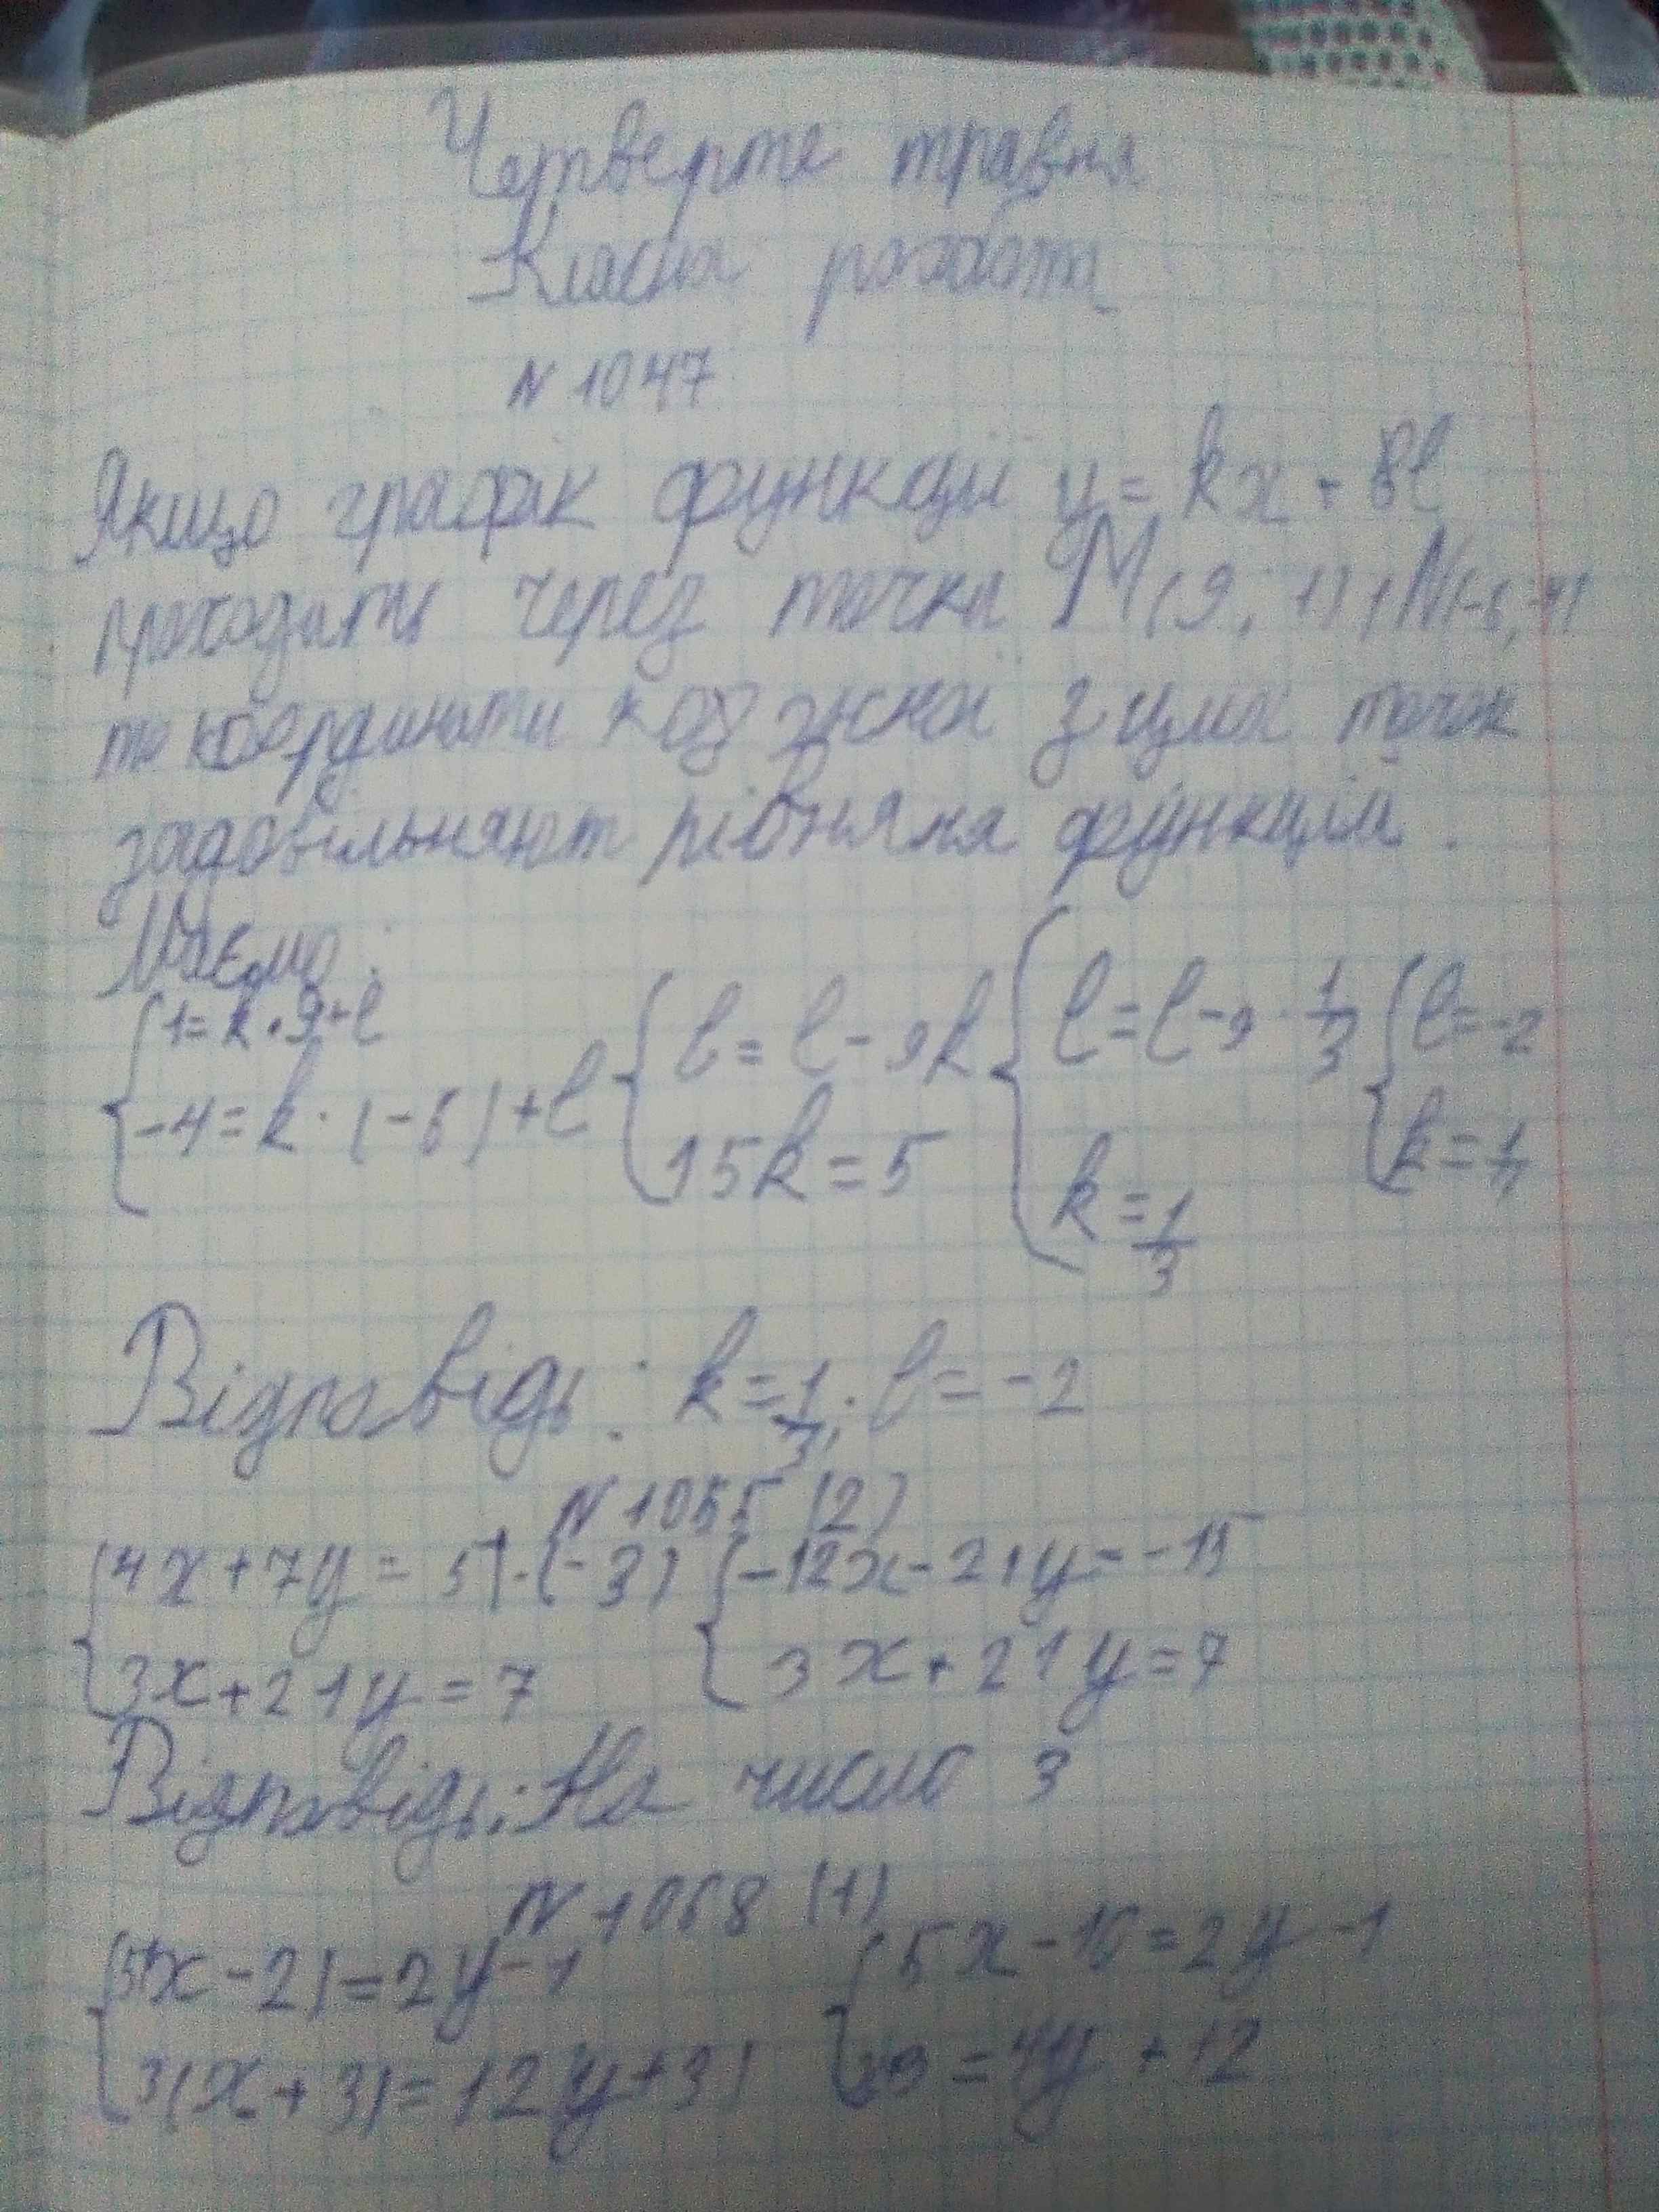 Четверте травня
Класна робота
N 1047
Якщо графік функції y = kx + l
проходить через точки M(9; 1), N(-6; -4)
то координати кожної з цих точок
задовільняют рівняня функції.
Маємо:
{1 = k · 9 + l {l = l - 9k {l = l - 9 · 1/3 {l = -2
{-4 = k · (-6) + l {15k = 5 {k = 1/3 {k = 1/
Відповідь: k = 1/3; l = -2
N 1055 (2)
{4x + 7y = 5 | · (-3) {-12x - 21y = -15
{3x + 21y = 7 {3x + 21y = 7
Відповідь: На число 3
N 1068 (1)
{5(x - 2) = 2y - 1 {5x - 10 = 2y - 1
{3(x + 3) = 12y + 3) = 4y + 12